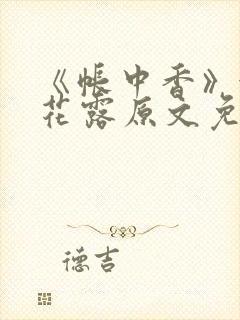 《帐中香》
花露原文免
德吉